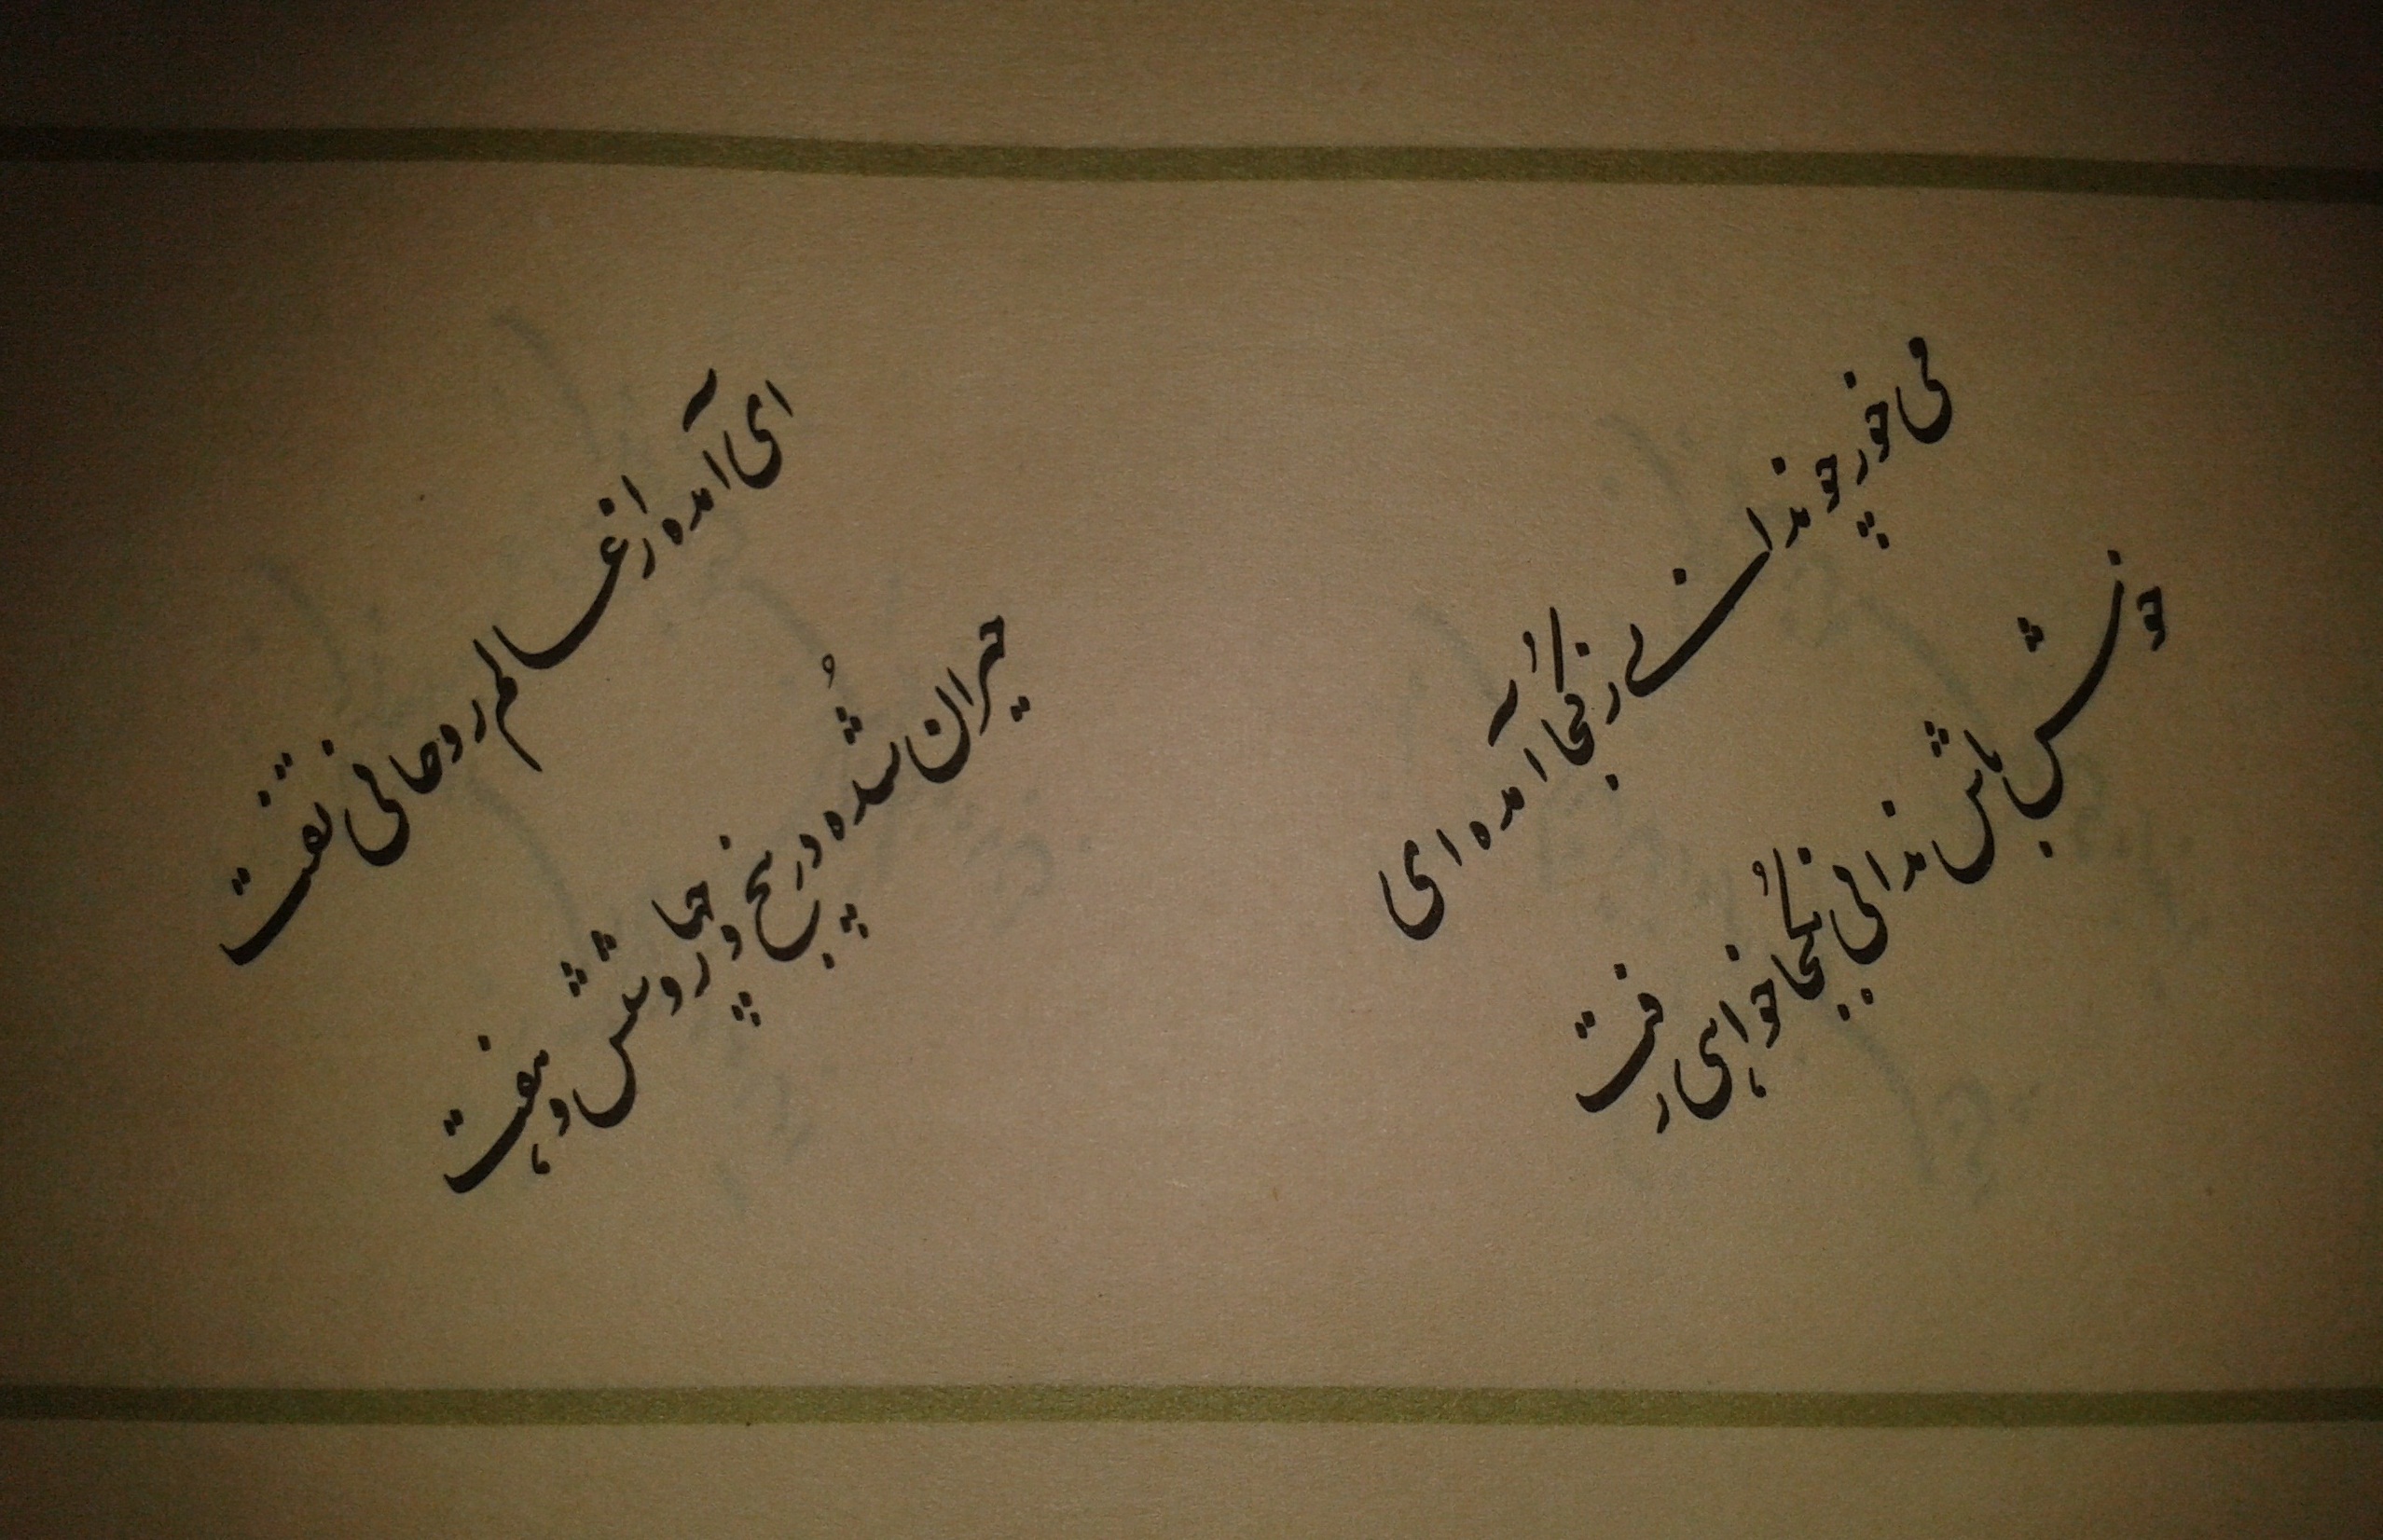 ای آمده از عالم روحانی تفت
حیران شده در پنج و چهار و شش و هفت
می خور چو ندانی ز کجا آمده ای
خوش باش ندانی بکجا خواهی رفت